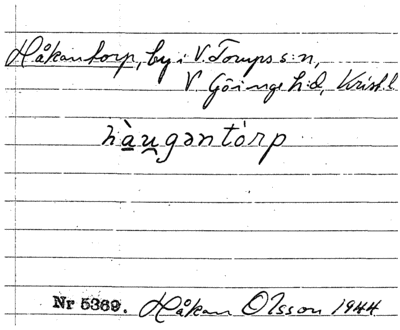 Håkantorp, by i V. Torups s:n,
V. Göinge h:d, Krist. l
hàu̯gəntòrp
Nr 5369. Håkan Olsson 1944